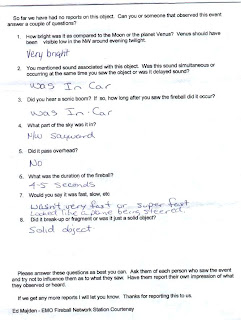 So far we have had no reports on this object. Can you or someone that observed this event
answer a couple of questions?
1. How bright was it as compared to the Moon or the planet Venus? Venus should have
been visible low in the NW around evening twilight.
Very bright
2. You mentioned sound associated with this object. Was this sound simultaneous or
occurring at the same time you saw the object or was it delayed sound?
was In Car
3. Did you hear a sonic boom? If so, how long after you saw the fireball did it occur?
was In Car
4. What part of the sky was it in?
N/W Sayward
5. Did it pass overhead?
No
6. What was the duration of the fireball?
4-5 seconds
7. Would you say it was fast, slow, etc
wasn't very fast or super fast
Looked like a plane being steered.
8. Did it break-up or fragment or was it just a solid object?
Solid object
Please answer these questions as best you can. Ask them of each person who saw the event
and try not to influence them as to what they saw. Have them report their own impression of what
they observed or heard.
If we get any more reports I will let you know. Thanks for reporting this to us.
Ed Majden - EMO Fireball Network Station Courtenay